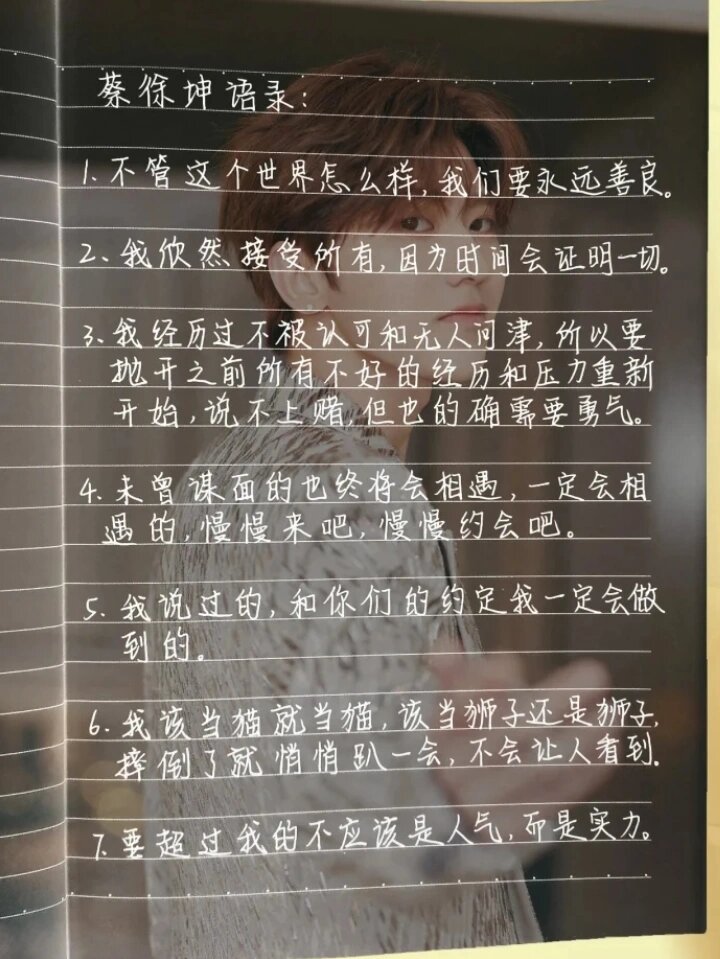 蔡徐坤语录:
1. 不管这个世界怎么样,我们要永远善良。
2. 我欣然接受所有,因为时间会证明一切。
3. 我经历过不被认可和无人问津,所以要
抛开之前所有不好的经历和压力重新
开始,说不上赌,但也的确需要勇气。
4. 未曾谋面的也终将会相遇,一定会相
遇的,慢慢来吧,慢慢约会吧。
5. 我说过的,和你们的约定我一定会做
到的。
6. 我该当猫就当猫,该当狮子还是狮子,
摔倒了就悄悄趴一会,不会让人看到.
7. 要超过我的不应该是人气,而是实力。